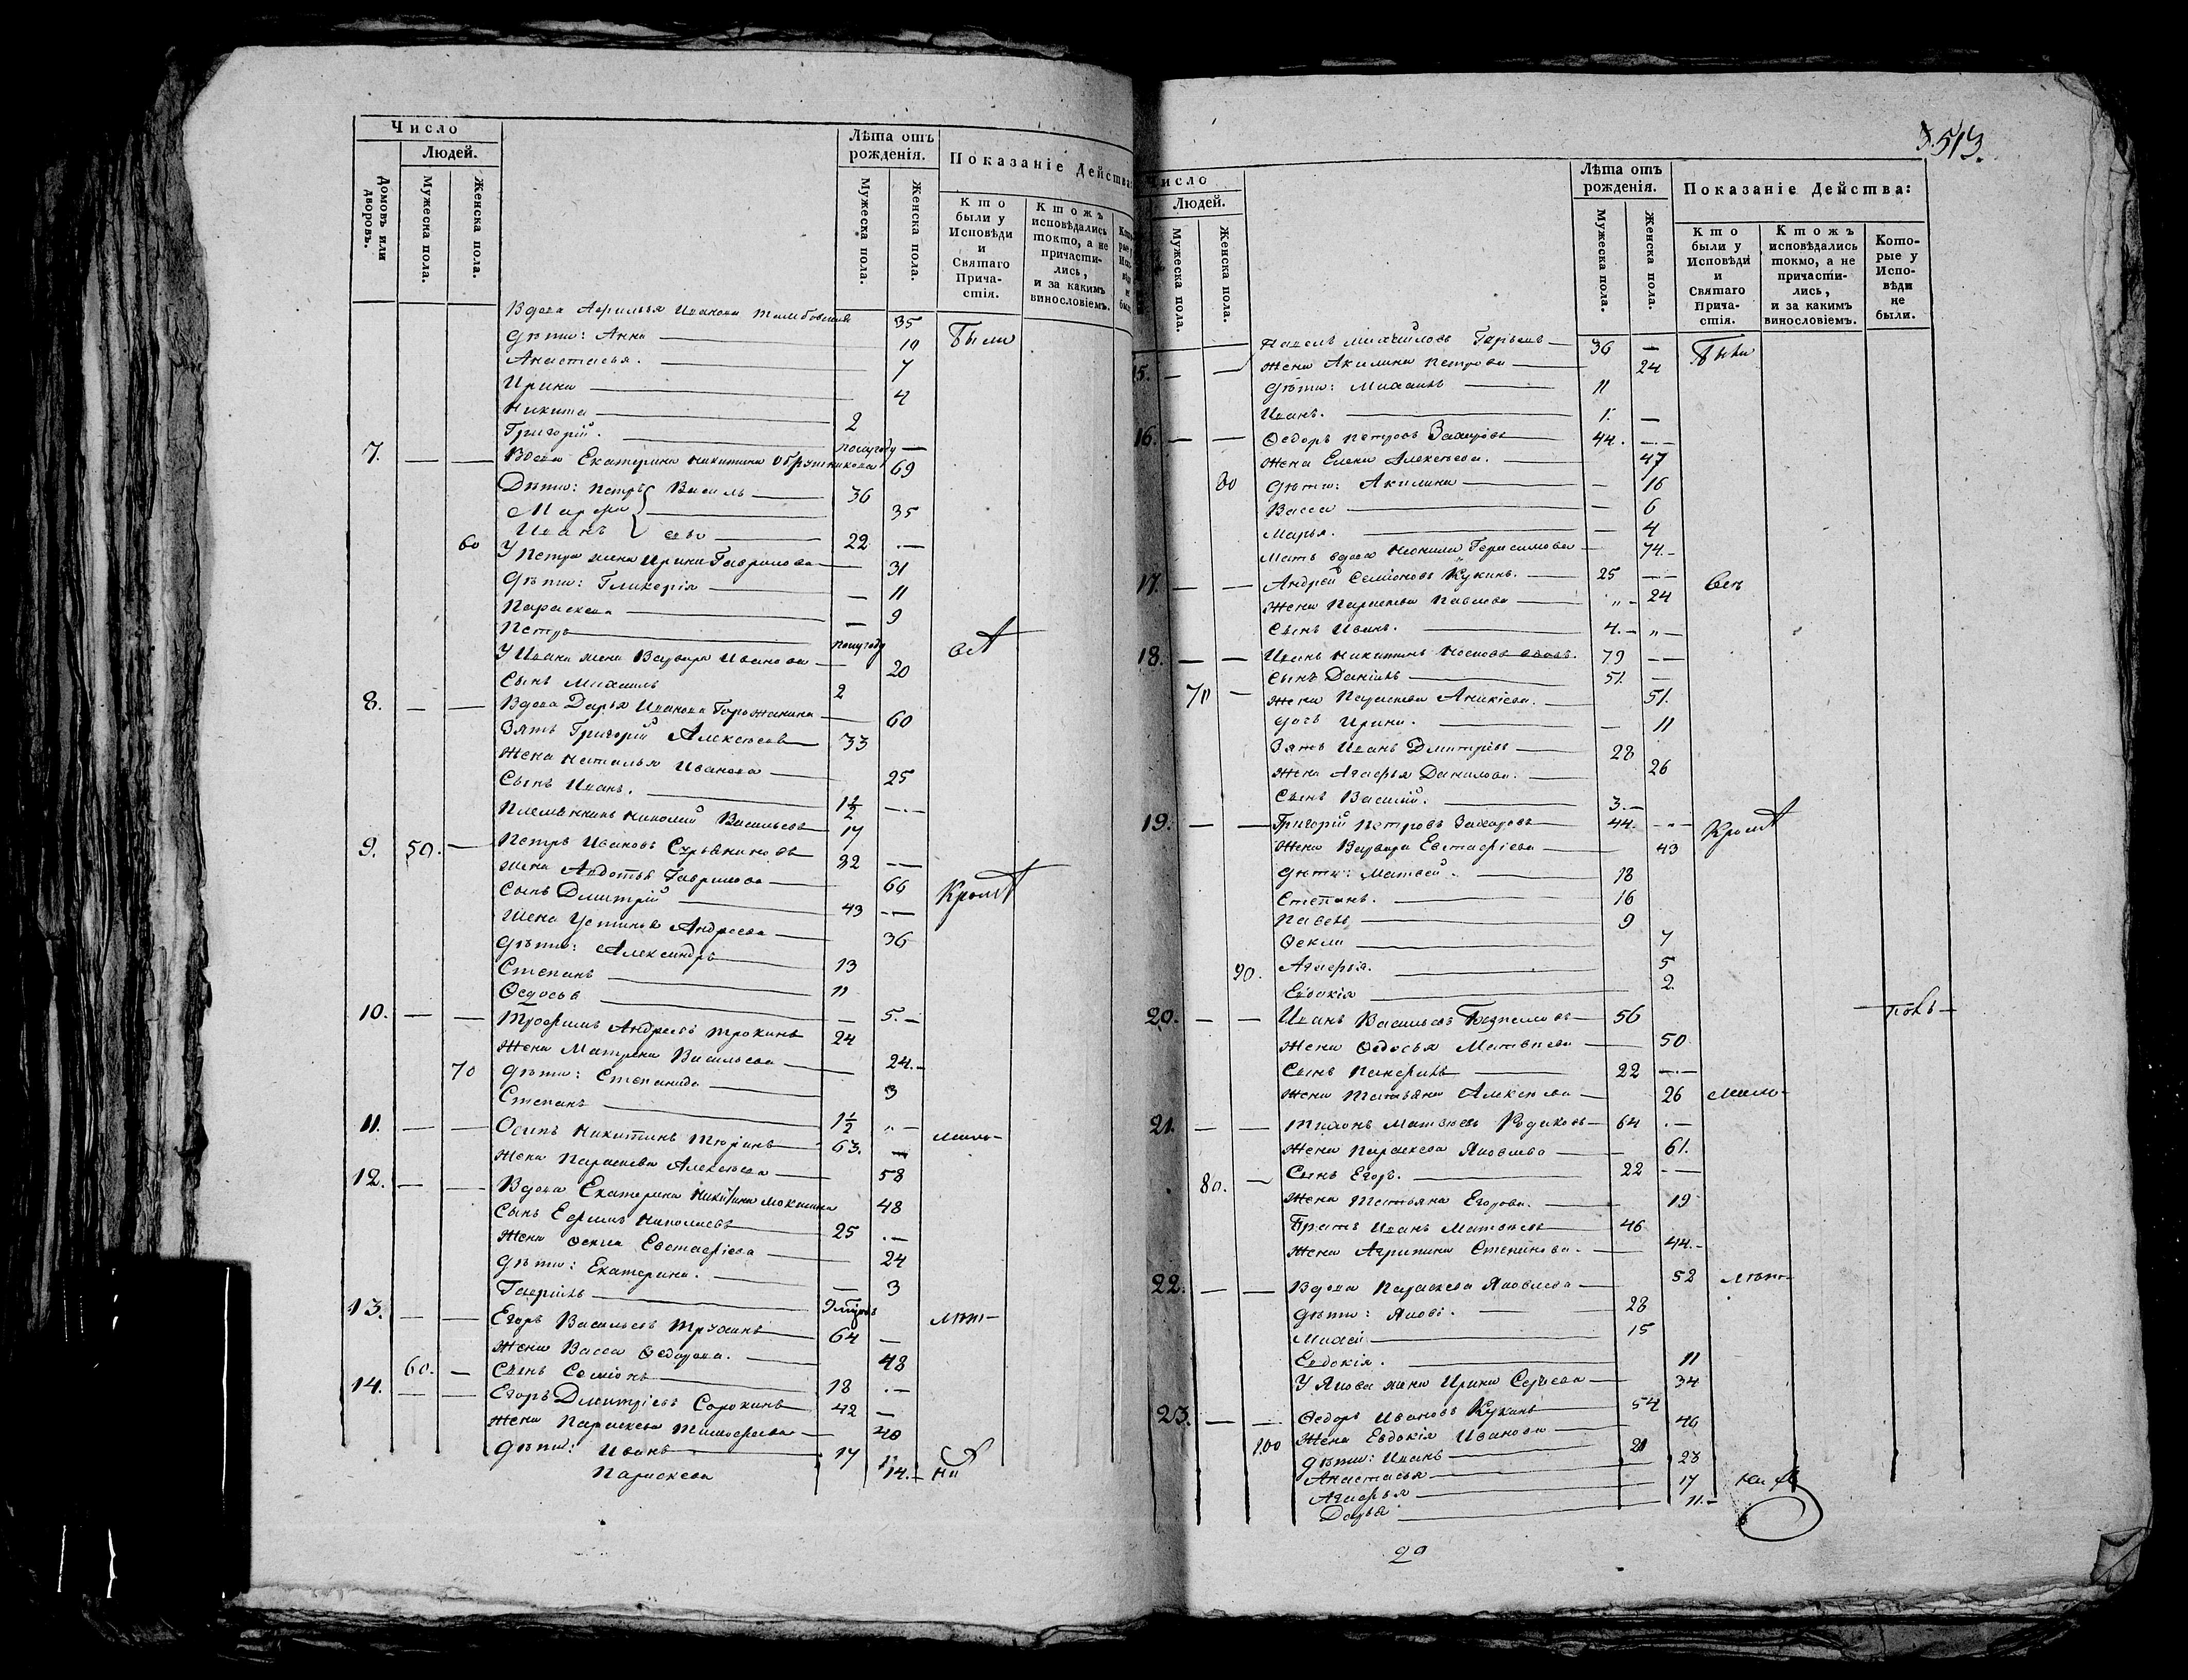 Число
Людей.
Домовъ или дворовъ.
Мужеска пола.
Женска пола.
Лѣта отъ рожденія.
Мужеска пола.
Женска пола.
Показаніе Действа:
Кто были у Исповѣди и Святаго Прича-стія.
Ктожъ исповѣдались токто, а не причасти-лись, и за какимъ винословіемъ.
Вдова Иванова 35 Были
Дѣти: Анна 10
Анастасья. 7
Ирина 4
Никита 2
Григорій. полугоду
7. Вдова Екатерина Никитина 69
Дѣти: Петръ 36
Марфа 35
Иванъ 22
60 У Петра жена Ирина Гаврилова 31
Дѣти: Гликерія 11
Параскева 9
Петръ полугоду
У Ивана жена Варвара Иванова 20
Сынъ Михаилъ 2
8. Вдова Дарья Иванова 60
Зять Григорій Алексѣевъ 33
Жена Наталья Иванова 25
Сынъ Иванъ. 1½
Племянникъ Николай Васильевъ 17
9. 50. Петръ Ивановъ 82
Жена Авдотья Гаврилова 66
Сынъ Дмитрій 43
Жена Устинья Андреева 36
Дѣти: Александръ 13
Степанъ 11
Ѳедосья 5.
10. Трофимъ Андреевъ Трохинъ 24
Жена Матрена Васильева 24.
70 Дѣти: Степанида 3
Степанъ 1½
11. Осипъ Никитинъ Тюринъ 63.
Жена Параскева Алексѣева 58
12. Вдова Екатерина Никитина 48
Сынъ Ефимъ Николаевъ 25
Жена Ѳекла Евстафіева 24
Дѣти: Екатерина. 3
Гаврилъ
13. Егоръ Васильевъ 64
Жена Васса Ѳедорова. 48
60. Сынъ Семіонъ 18
14. Егоръ Дмитріевъ Сорокинъ 42
Жена Параскева Тимофеева 40
Дѣти: Иванъ 17
Параскева 14.
513.
Число
Людей.
Мужеска пола.
Женска пола.
Лѣта отъ рожденія.
Мужеска пола.
Женска пола.
Показаніе Действа:
Кто были у Исповѣди и Святаго Прича-стія.
Ктожъ исповѣдались токмо, а не причасти-лись, и за какимъ винословіемъ.
Кото-рые у Испо-вѣди не были.
15. Павелъ Михайловъ 36 Были
Жена Акилина Петрова 24
Дѣти: Михаилъ 11
Иванъ. 1.
16. Ѳедоръ Петровъ Захаровъ 44.
Жена Елена Алексѣева. 47
80 Дѣти: Акилина 16
Васса 6
Марья. 4
Мать вдова Неонила Герасимова 74.
17. Андрей Семіоновъ Кукинъ. 25
Жена Параскева Павлова 24
Сынъ Иванъ. 4.
18. Иванъ Никитинъ 79
Сынъ Даніилъ 51.
70 Жена Параскева Аникіева. 51.
Дочь Ирина. 11
Зять Иванъ Дмитріевъ 28
Жена Агафья Данилова. 26
Сынъ Василій. 3.
19. Григорій Петровъ Захаровъ 44.
Жена Варвара Евстафіева 43
Дѣти: Матвей. 18
Степанъ. 16
Павелъ 9
Ѳекла 7
90. Агафья. 5
Евдокія 2
20. Иванъ Васильевъ 56
Жена Ѳедосья Матвѣева 50
Сынъ Панфилъ 22
Жена Татьяна Алексѣева 26
21. Тихонъ Матвѣевъ 64
Жена Параскева Яковлева 61.
80. Сынъ Егоръ. 22
Жена Татьяна Егорова. 19
Братъ Иванъ Матвѣевъ 46
Жена Агрипина Степанова. 44.
22. Вдова Параскева Яковлева 52
Дѣти: Яковъ. 28
15
Евдокія. 11
У Якова жена Ирина 34
23. Ѳедоръ Ивановъ Кукинъ 54
100 Жена Евдокія Иванова 46
Дѣти: Иванъ 21
Анастасья 23
Агафья 17
Дарья 11.